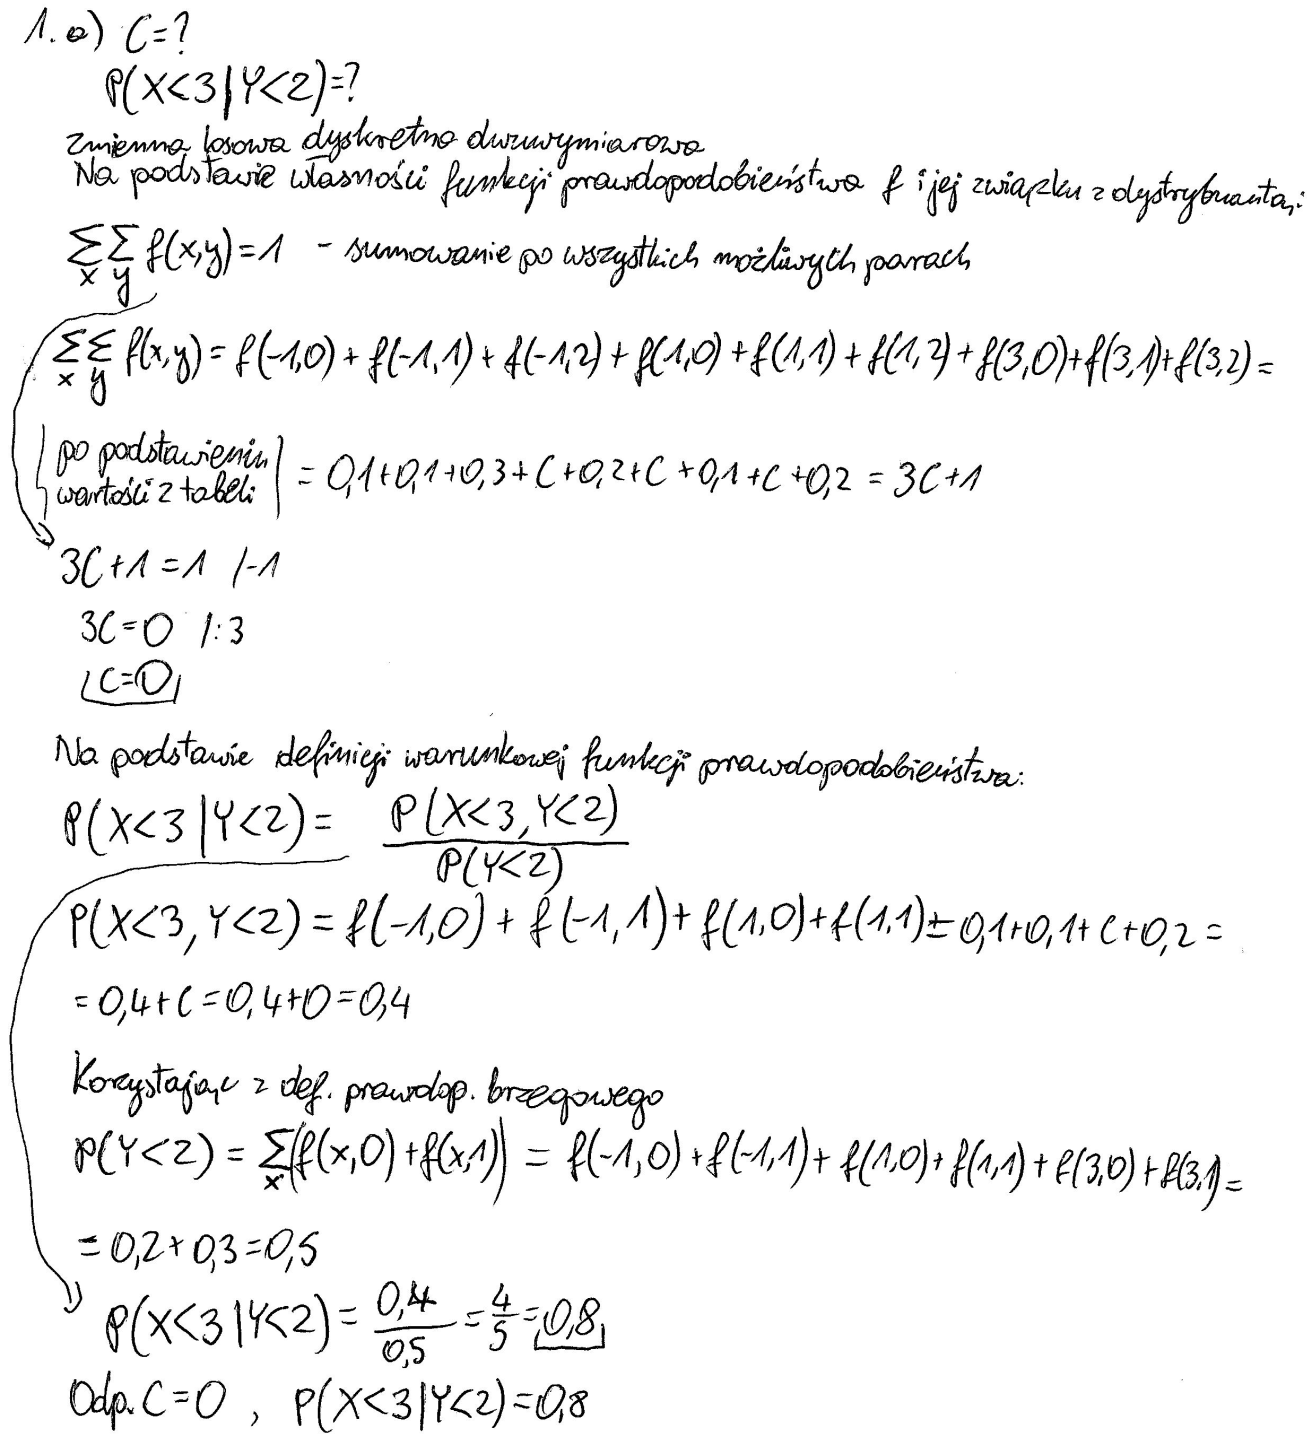 1. a) C=?
P(X<3|Y<2)=?
Zmienna losowa dyskretna dwuwymiarowa
Na podstawie własności funkcji prawdopodobieństwa f i jej związku z dystrybuantą:
∑∑ f(x,y)=1 - sumowanie po wszystkich możliwych parach
x y
∑∑ f(x,y) = f(-1,0) + f(-1,1) + f(-1,2) + f(1,0) + f(1,1) + f(1,2) + f(3,0) + f(3,1) + f(3,2) =
x y
|po podstawieniu
wartości z tabeli| = 0,1+0,1+0,3+C+0,2+C+0,1+C+0,2 = 3C+1
3C+1=1 /-1
3C=0 /:3
C=0
Na podstawie definicji warunkowej funkcji prawdopodobieństwa:
P(X<3|Y<2) = P(X<3,Y<2)
P(Y<2)
P(X<3,Y<2) = f(-1,0) + f(-1,1) + f(1,0) + f(1,1) = 0,1+0,1+C+0,2 =
= 0,4+C=0,4+0=0,4
Korzystając z def. prawdop. brzegowego
P(Y<2) = ∑(f(x,0)+f(x,1)) = f(-1,0) + f(-1,1) + f(1,0) + f(1,1) + f(3,0) + f(3,1) =
x
= 0,2+0,3=0,5
P(X<3|Y<2) = 0,4/0,5 = 4/5 = 0,8
Odp. C=0, P(X<3|Y<2)=0,8